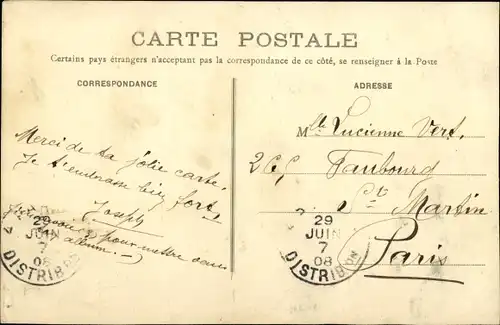 CARTE POSTALE
Certains pays étrangers n'acceptant pas la correspondance de ce côté, se renseigner à la Poste
CORRESPONDANCE
ADRESSE
Merci de ta jolie carte,
Je t'embrasse bien fort,
Joseph
pour mettre dans
album.
Mlle Lucienne Vert.
265 Faubourg
St Martin
Paris
29
JUIN
7
08
DISTRIBON
29
JUIN
7
08
DISTRIBON